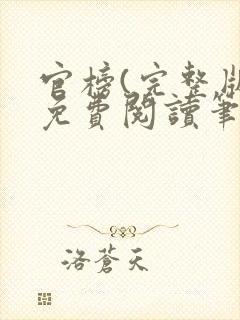 官榜(完整版
免費閱讀筆
洛蒼天